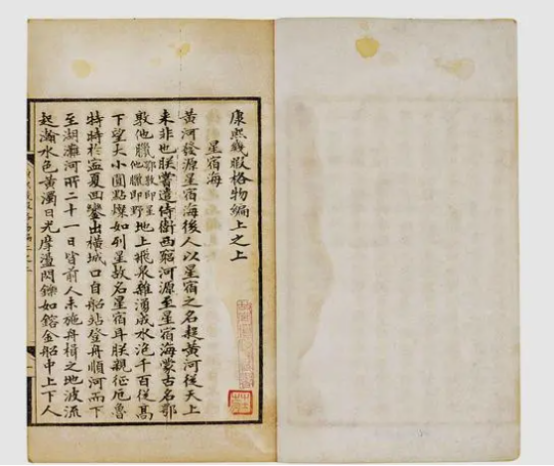 康熙幾暇格物編上之上
星宿海
黃河發源星宿海後人以星宿之名疑黃河從天上
來非也朕嘗遣侍衛西窮河源至星宿海蒙古名鄂
敦他臘鄂敦即星他臘即野地上飛泉雜湧成水泡千百從高
下望大小圓點燦如列星故名星宿耳朕親征厄魯
特時於寧夏回鑾出橫城口自船站登舟順河而下
至湖灘河所二十一日皆前人未施舟楫之地波流
起瀚水色黃濁日光摩盪閃鑠如鎔金船中上下人